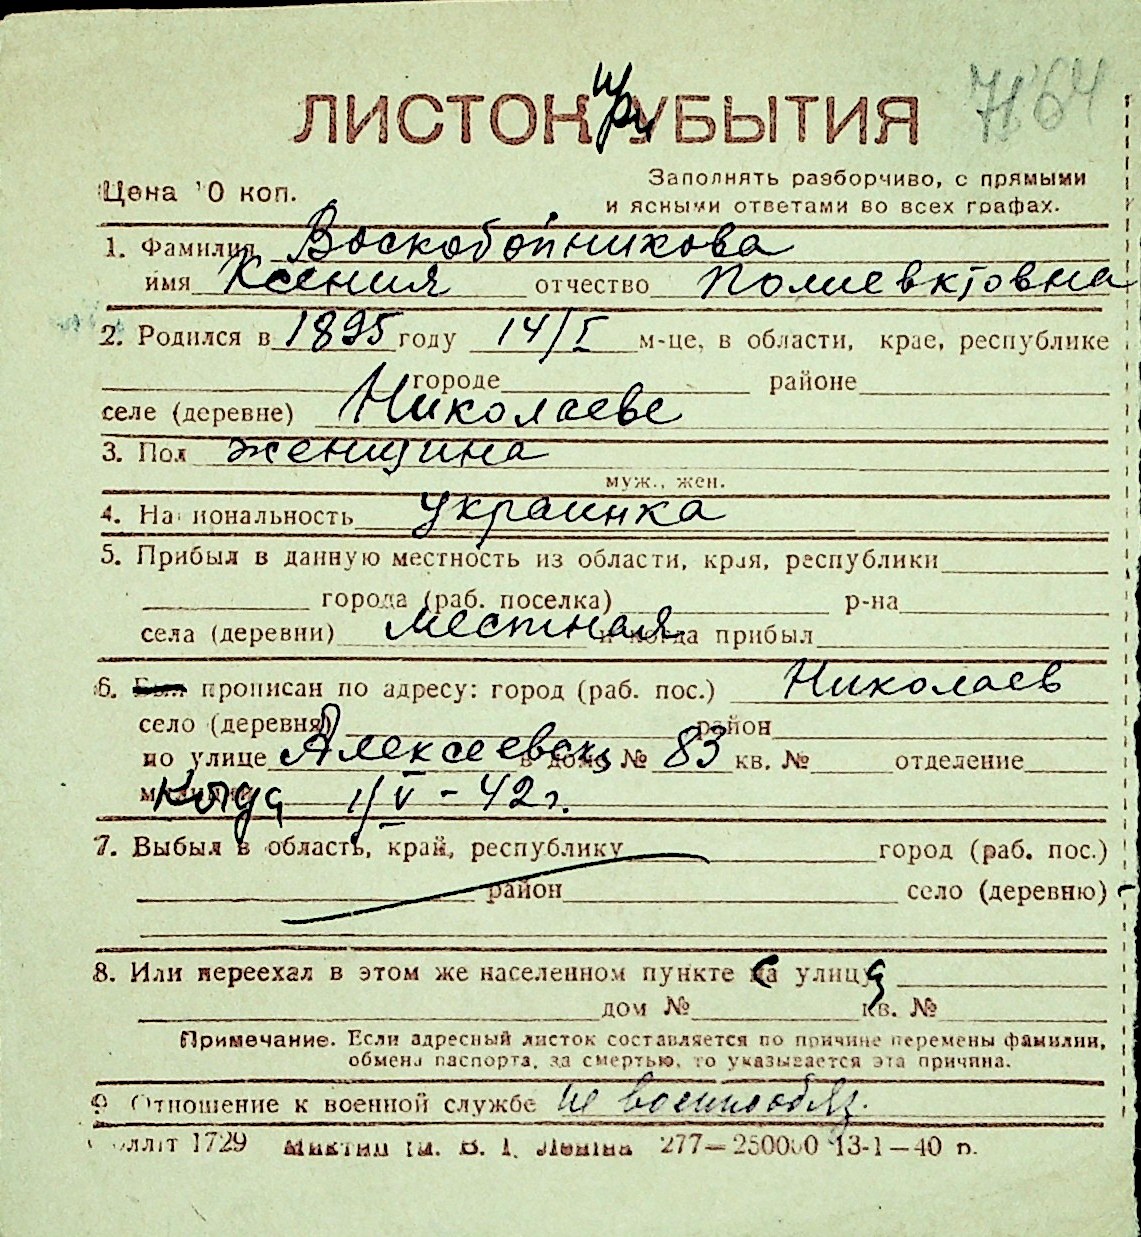 7164
ЛИСТОК при УБЫТИЯ
Цена 10 коп.
Заполнять разборчиво, с прямыми
и ясными ответами во всех графах.
1. Фамилия Воскобойникова
имя Ксения отчество Полиевктовна
2. Родился в 1895 году 14/I м-це, в области, крае, республике
городе районе
селе (деревне) Николаеве
3. Пол женщина
муж., жен.
4. Национальность украинка
5. Прибыл в данную местность из области, края, республики
города (раб. поселка) р-на
села (деревни) местная и когда прибыл
6. Был прописан по адресу: город (раб. пос.) Николаев
село (деревня) район
по улице Алексеевск. в доме № 83 кв. № отделение
Когда 1/V - 42 г.
7. Выбыл в область, край, республику город (раб. пос.)
район село (деревню)
8. Или переехал в этом же населенном пункте с улицы
дом № кв. №
Примечание. Если адресный листок составляется по причине перемены фамилии,
обмена паспорта, за смертью, то указывается эта причина.
9 Отношение к военной службе не военнообяз.
1729 им. В. І. Леніна 277—250000 13-1—40 п.